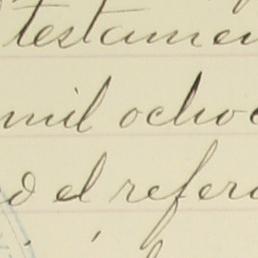 testamen
mil ochoc
ó el refer